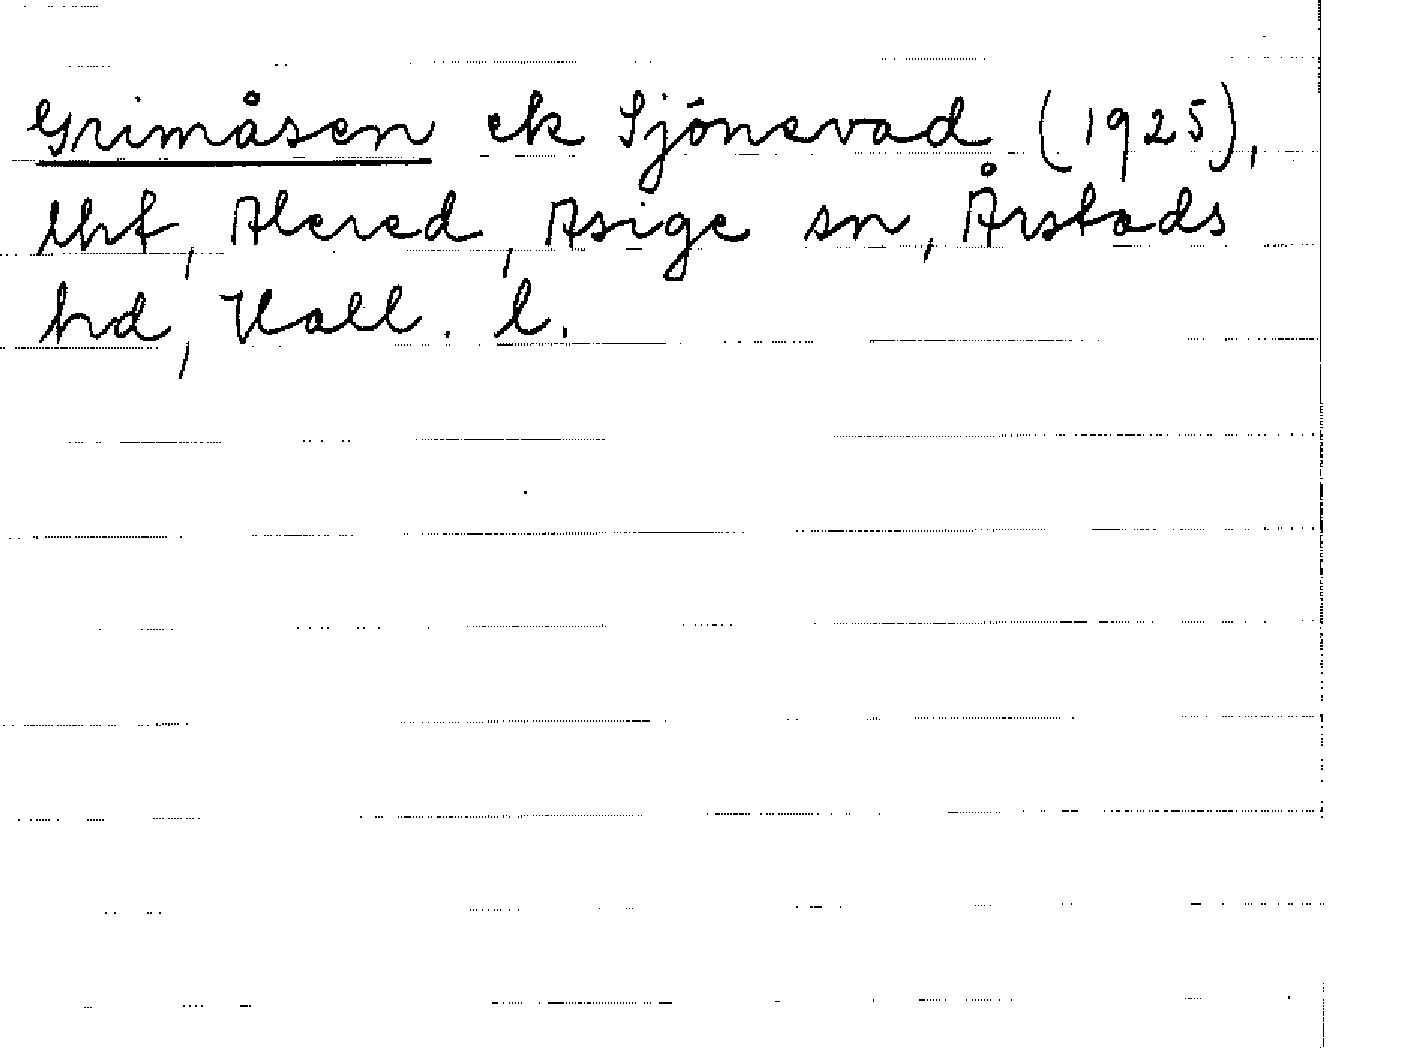 Grimåsen ek Sjönevad (1925),
lhf, Alered, Asige sn, Årstads
hd, Hall. l.